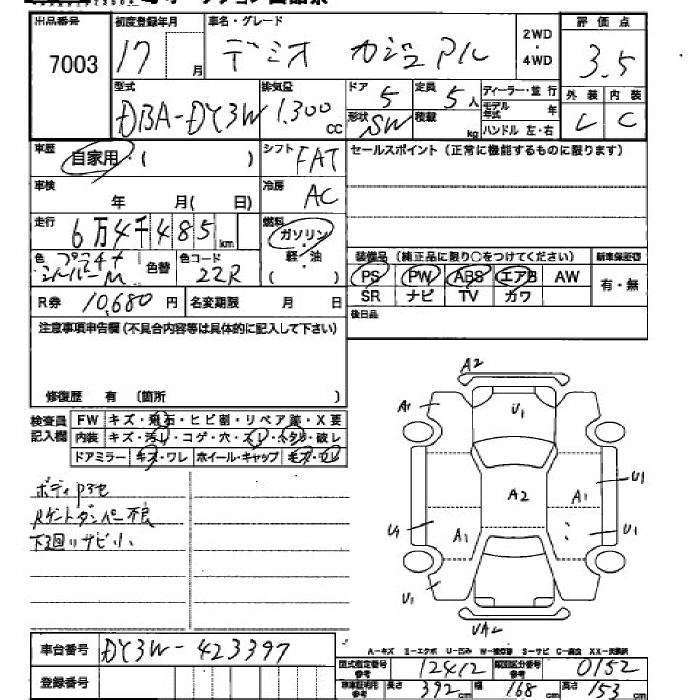 出品番号 初度登録年月 車名・グレード 2WD・4WD 評価点
7003 17 月 デミオ カジュアル 3.5
型式 排気量 ドア 定員 ディーラー・並行 外装 内装
DBA-DY3W 1.300 cc 5 5人 モデル年式 年 C
形状 SW 積載 kg ハンドル 左・右
車歴 自家用・( ) シフト FAT セールスポイント(正常に機能するものに限ります)
車検 年 月( 日) 冷房 AC
走行 6万4千485km 燃料 ガソリン・軽・油 ( )
色 シルバーM 色替 色コード 22R 装備品(純正品に限り○をつけてください) 新車保証書
PS PW ABS エアB AW 有・無
R券 10,680円 名変期限 月 日 SR ナビ TV カワ
注意事項申告欄(不具合内容等は具体的に記入して下さい) 後日品
修復歴 有 (箇所 )
検査員記入欄 FW キズ・飛石・ヒビ割・リペア跡・X要
内装 キズ・汚レ・コゲ・穴・スレ・ヘタリ・破レ
ドアミラー キズ・ワレ ホイール・キャップ キズ・ワレ
A2
A1 U1
A2 A1 U1
U1 A1 U1
U1
UA2
ボディ
Rゲートダンパー不良
下廻りサビ小
車台番号 DY3W-423397
A-キズ E-エクボ U-凹ミ W-補修跡 S-サビ C-腐食 XX-交換済
登録番号 型式指定番号 参考 12412 類別区分番号 参考 0152
車庫証明用 参考 長さ 392cm 幅 168cm 高さ 153cm